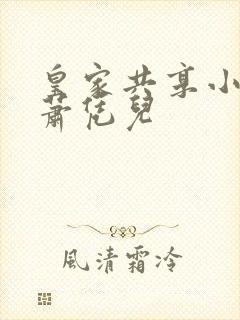 皇家共享小
蕭恁兒
風清霜冷